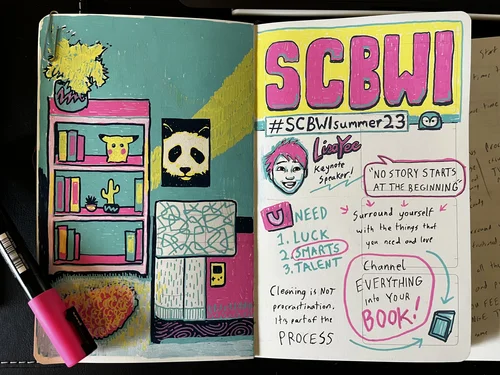 SCBWI
#SCBWIsummer23
LisaYee
Keynote
Speaker!
"NO STORY STARTS
AT THE BEGINNING"
U NEED
1. LUCK
2. SMARTS
3. TALENT
Surround yourself
with the things that
you need and love
Channel
EVERYTHING
into YOUR
BOOK!
Cleaning is NOT
procrastination.
Its part of the
PROCESS